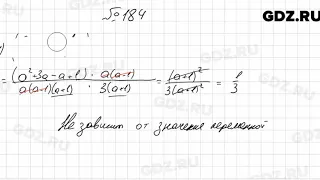 GDZ.RU
№ 184
= (a²+3a-a+1) · a(a-1) / a(a-1)(a+1) · 3(a+1) = (a+1)² / 3(a+1)² = 1/3
Не зависит от значения переменной